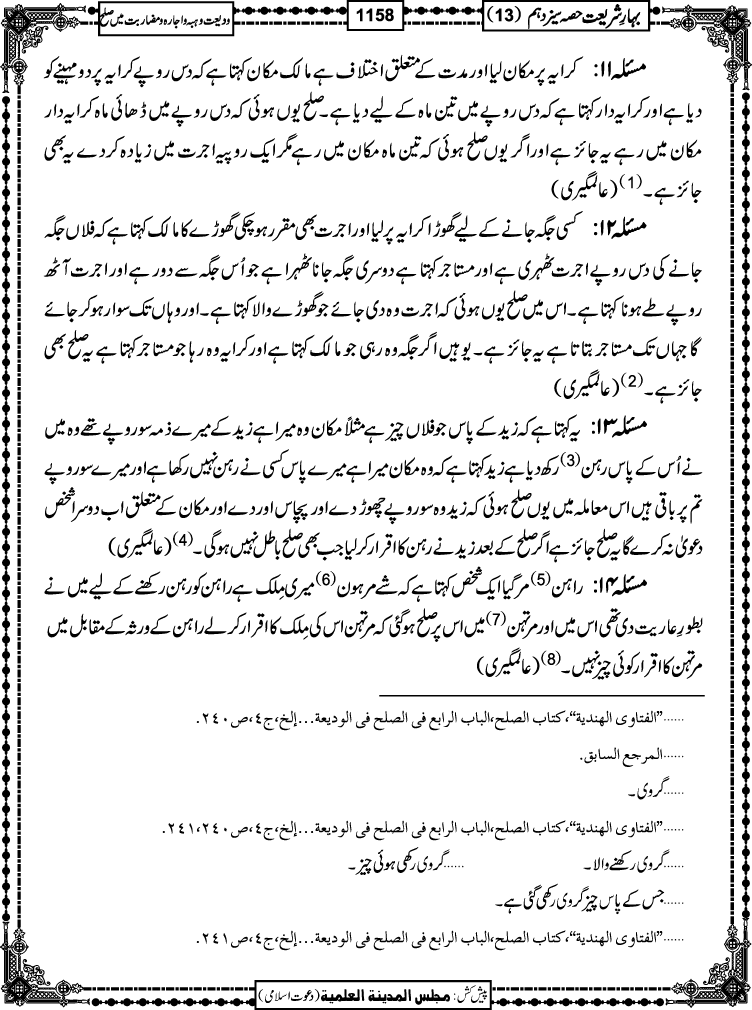 بہارِ شریعت حصہ سیزدہم (13)
1158
ودیعت و ہبہ و اجارہ و مضاربت میں صلح
مسئلہ ۱۱: کرایہ پر مکان لیا اور مدت کے متعلق اختلاف ہے مالک مکان کہتا ہے کہ دس روپے کرایہ پر دو مہینے کو
دیا ہے اور کرایہ دار کہتا ہے کہ دس روپے میں تین ماہ کے لیے دیا ہے۔ صلح یوں ہوئی کہ دس روپے میں ڈھائی ماہ کرایہ دار
مکان میں رہے یہ جائز ہے اور اگر یوں صلح ہوئی کہ تین ماہ مکان میں رہے مگر ایک روپیہ اجرت میں زیادہ کر دے یہ بھی
جائز ہے۔ (1) (عالمگیری)
مسئلہ ۱۲: کسی جگہ جانے کے لیے گھوڑا کرایہ پر لیا اور اجرت بھی مقرر ہو چکی گھوڑے کا مالک کہتا ہے کہ فلاں جگہ
جانے کی دس روپے اجرت ٹھہری ہے اور مستاجر کہتا ہے دوسری جگہ جانا ٹھہرا ہے جو اُس جگہ سے دور ہے اور اجرت آٹھ
روپے طے ہونا کہتا ہے۔ اس میں صلح یوں ہوئی کہ اجرت وہ دی جائے جو گھوڑے والا کہتا ہے۔ اور وہاں تک سوار ہو کر جائے
گا جہاں تک مستاجر بتاتا ہے یہ جائز ہے۔ یوہیں اگر جگہ وہ رہی جو مالک کہتا ہے اور کرایہ وہ رہا جو مستاجر کہتا ہے یہ صلح بھی
جائز ہے۔ (2) (عالمگیری)
مسئلہ ۱۳: یہ کہتا ہے کہ زید کے پاس جو فلاں چیز ہے مثلاً مکان وہ میرا ہے زید کے میرے ذمہ سو روپے تھے وہ میں
نے اُس کے پاس رہن (3) رکھ دیا ہے زید کہتا ہے کہ وہ مکان میرا ہے میرے پاس کسی نے رہن نہیں رکھا ہے اور میرے سو روپے
تم پر باقی ہیں اس معاملہ میں یوں صلح ہوئی کہ زید وہ سو روپے چھوڑ دے اور پچاس اور دے اور مکان کے متعلق اب دوسرا شخص
دعویٰ نہ کرے گا یہ صلح جائز ہے اگر صلح کے بعد زید نے رہن کا اقرار کر لیا جب بھی صلح باطل نہیں ہوگی۔ (4) (عالمگیری)
مسئلہ ۱۴: راہن (5) مر گیا ایک شخص کہتا ہے کہ شے مرہون (6) میری مِلک ہے راہن کو رہن رکھنے کے لیے میں نے
بطورِ عاریت دی تھی اس میں اور مرتہن (7) میں اس پر صلح ہوگئی کہ مرتہن اس کی مِلک کا اقرار کر لے راہن کے ورثہ کے مقابل میں
مرتہن کا اقرار کوئی چیز نہیں۔ (8) (عالمگیری)
......"الفتاوی الهندية"،كتاب الصلح،الباب الرابع فی الصلح فی الوديعة...إلخ،ج٤،ص٢٤٠.
......المرجع السابق.
......گروی۔
......"الفتاوی الهندية"،كتاب الصلح،الباب الرابع فی الصلح فی الوديعة...إلخ،ج٤،ص٢٤٠،٢٤١.
......گروی رکھنے والا۔ ......گروی رکھی ہوئی چیز۔
......جس کے پاس چیز گروی رکھی گئی ہے۔
......"الفتاوی الهندية"،كتاب الصلح،الباب الرابع فی الصلح فی الوديعة...إلخ،ج٤،ص٢٤١.
پیش کش: مجلس المدینة العلمیة (دعوت اسلامی)